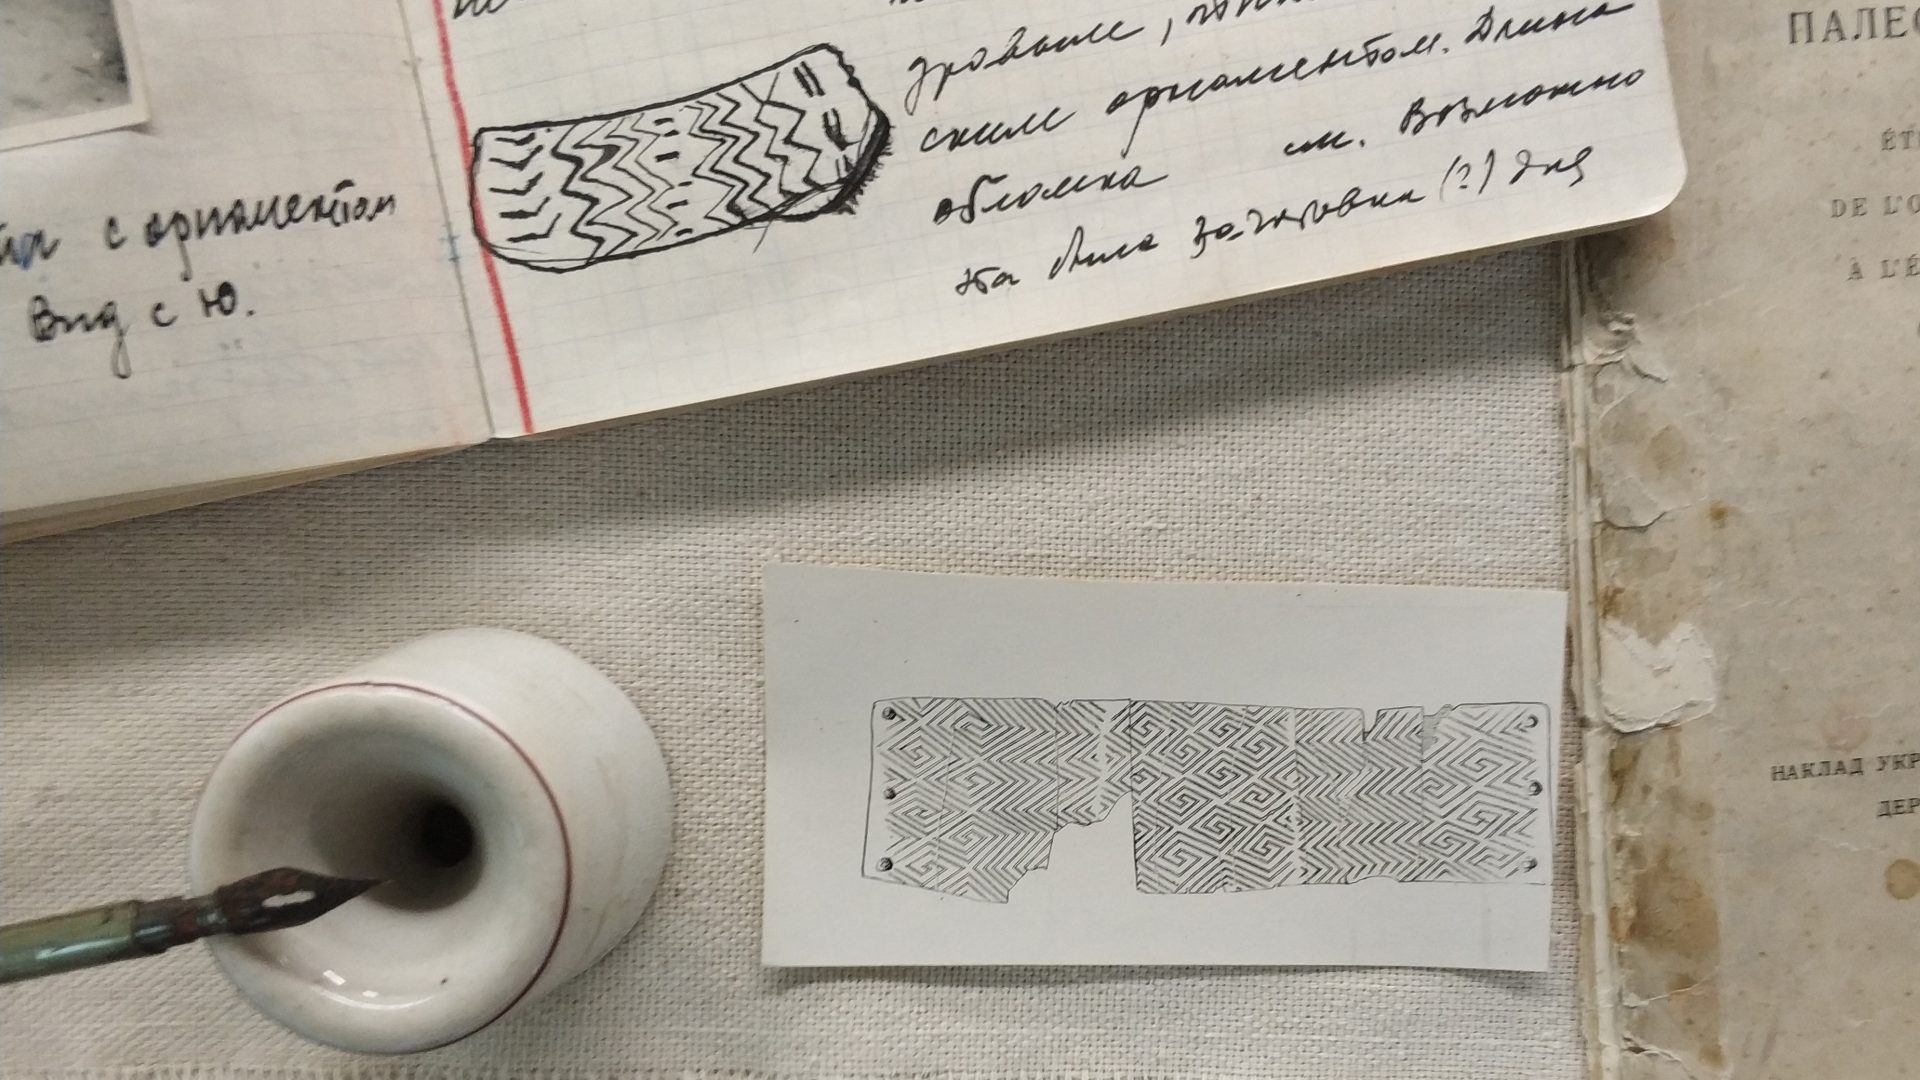 с орнаментом
Вид с Ю.
ским орнаментом. Длина
обломка см. Возможно
это была заготовка (?) для
ПАЛЕО
ÉT
DE L'O
À L'É
НАКЛАД УКР
ДЕР